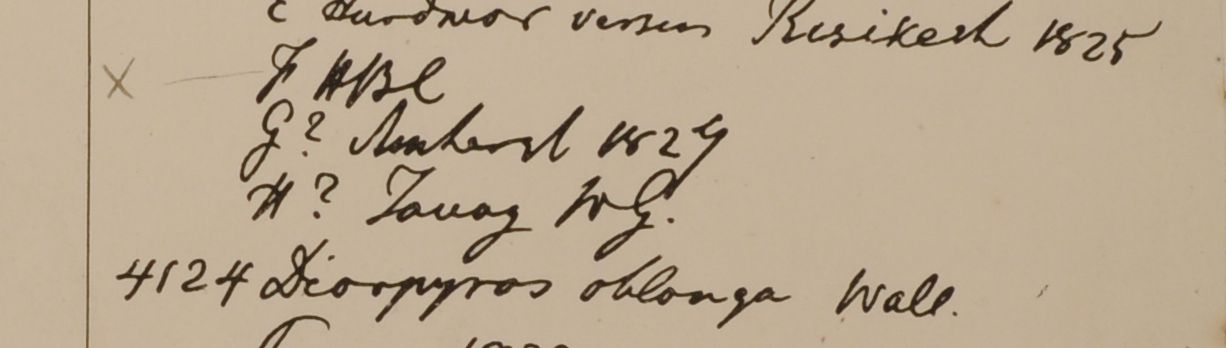 Hurdwar versus Resikesh 1825
X F HBC
G? Amherst 1827
H? Tavoy WG.
4124 Diospyros oblonga Wall.